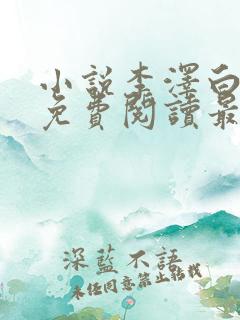 小說李澤白
免費閱讀最
深藍不語
未經同意禁止轉載